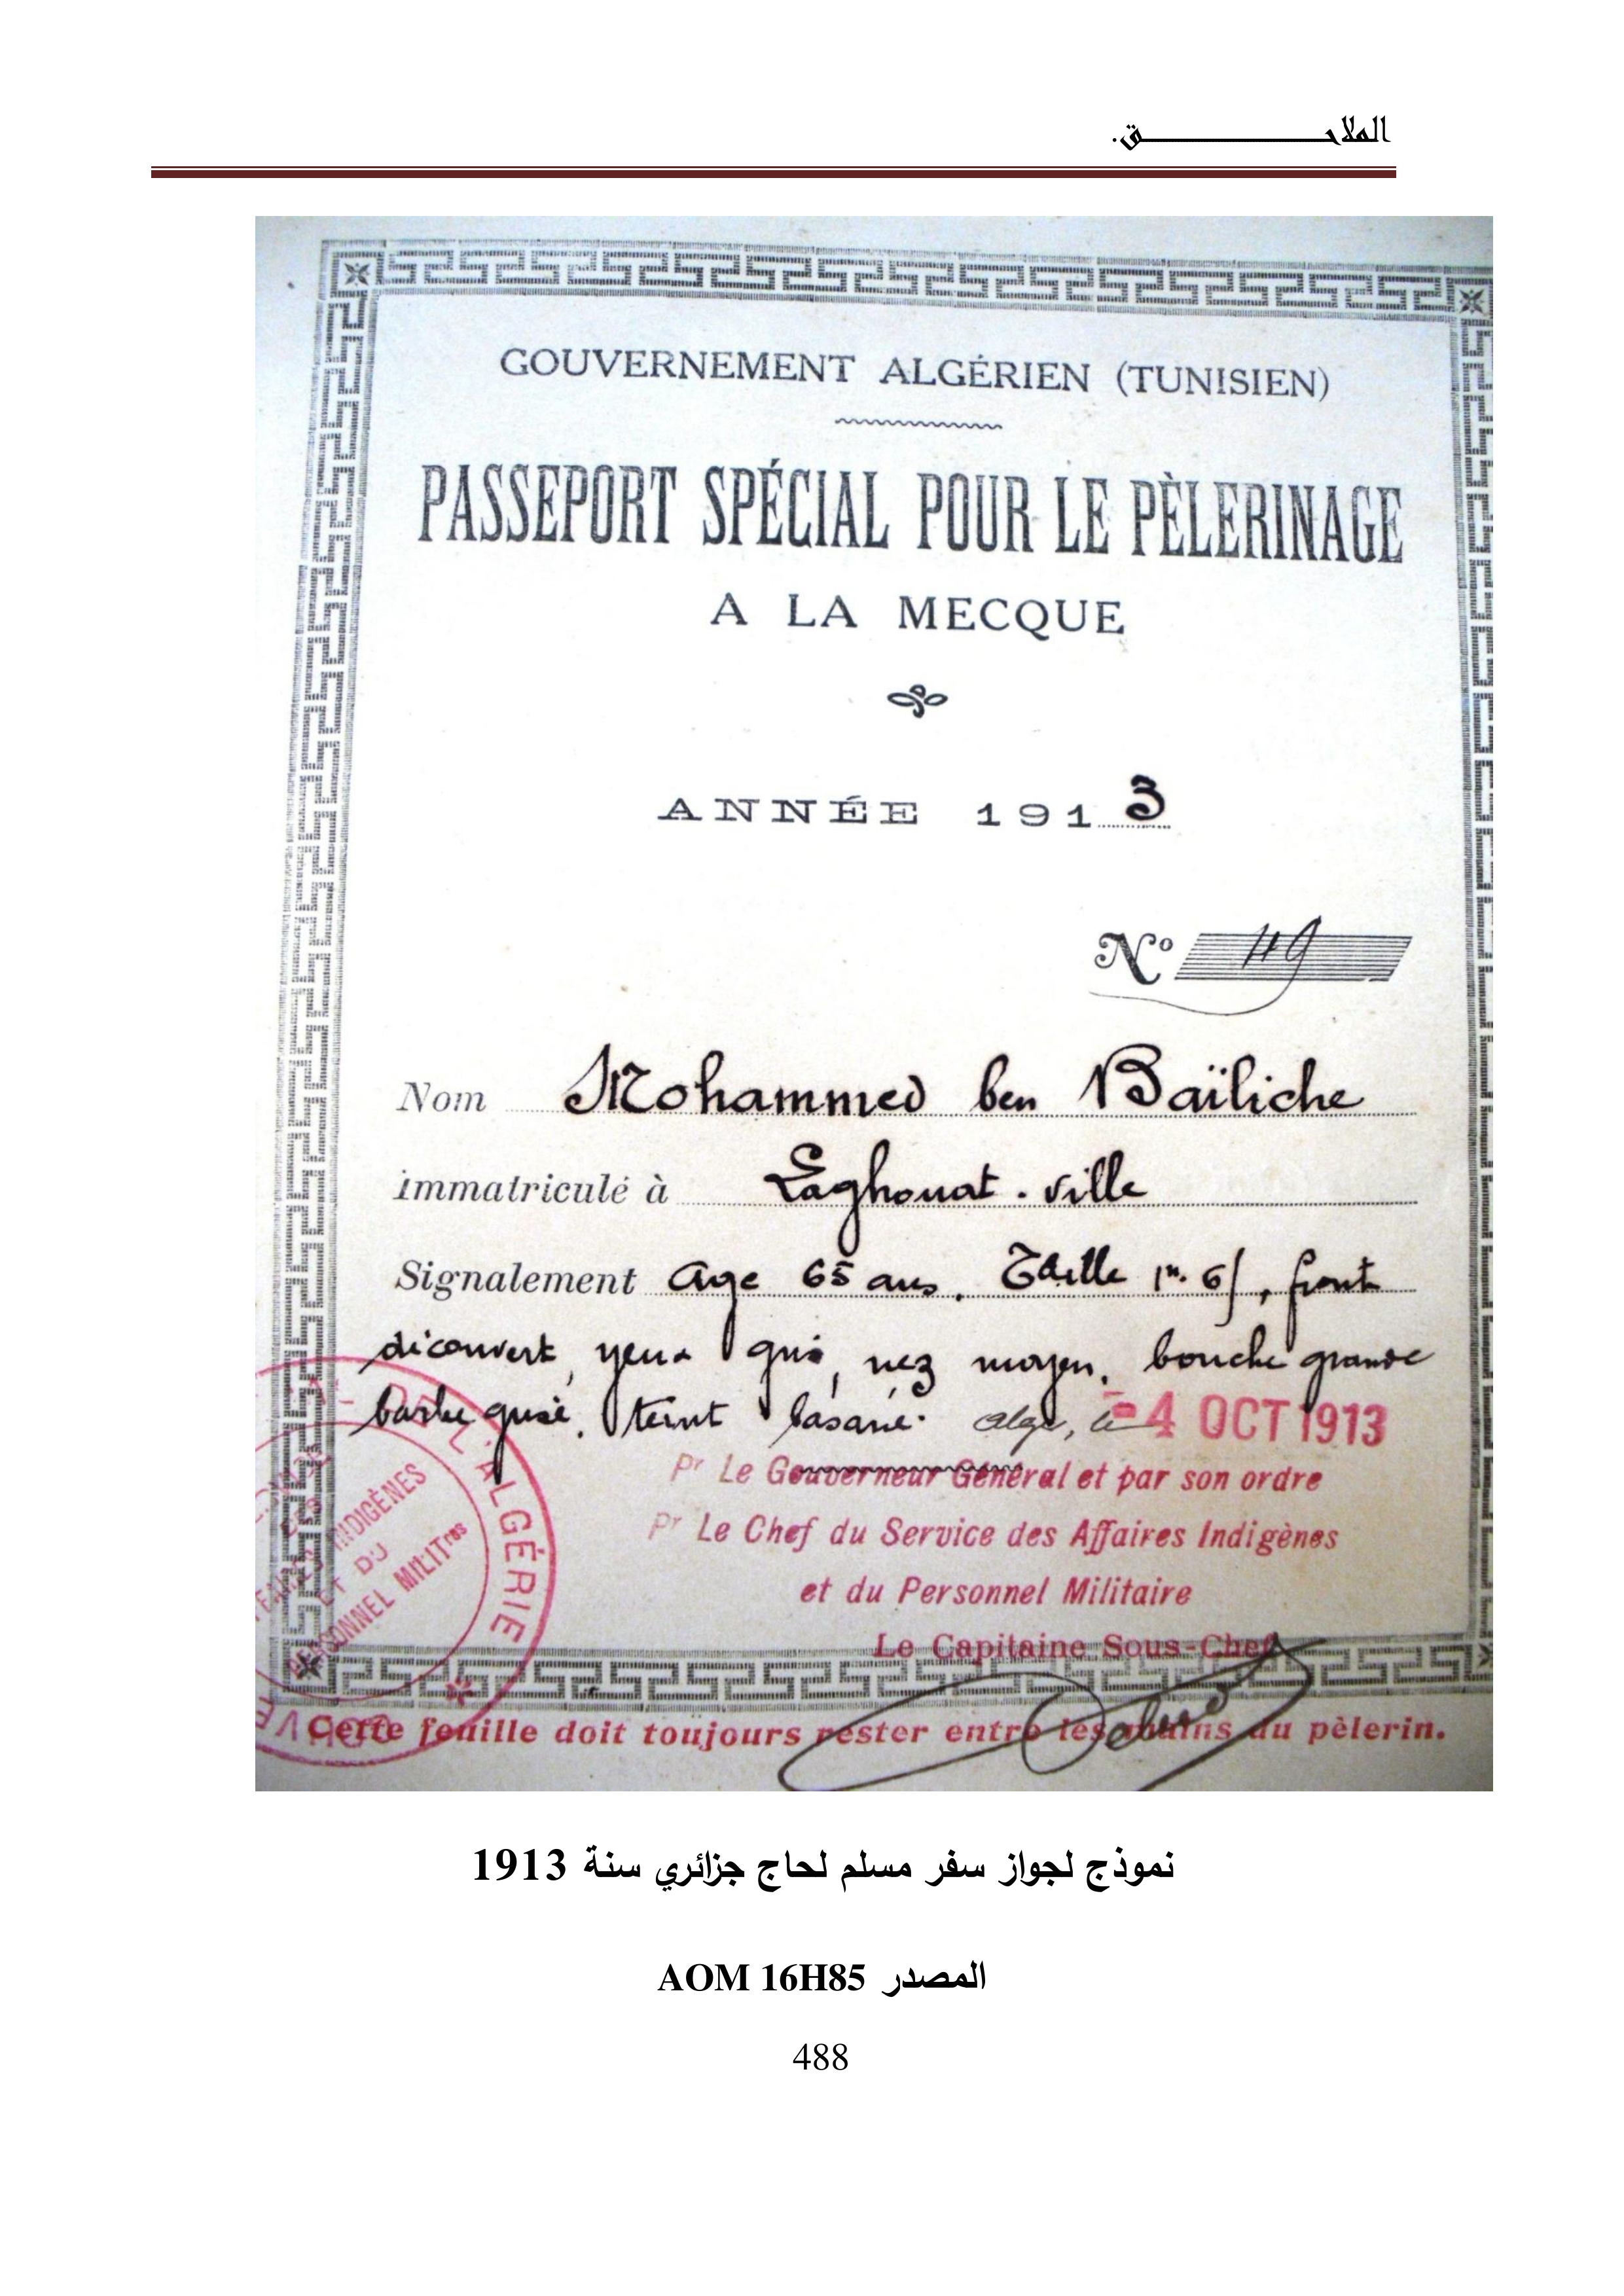 الملاحق.
GOUVERNEMENT ALGÉRIEN (TUNISIEN)
PASSEPORT SPÉCIAL POUR LE PÈLERINAGE
A LA MECQUE
ANNÉE 1913
No 119
Nom Mohammed ben Baïliche
immatriculé à Laghouat-ville
Signalement age 65 ans. Taille 1m. 61, front
découvert, yeux gris, nez moyen, bouche grande
barbe grise, teint basané. Alger, le -4 OCT 1913
Pr Le Gouverneur Général et par son ordre
Pr Le Chef du Service des Affaires Indigènes
et du Personnel Militaire
Le Capitaine Sous-Chef
DE L'ALGÉRIE
INDIGÈNES
ET DU
PERSONNEL MILITres
Cette feuille doit toujours rester entre les mains du pèlerin.
نموذج لجواز سفر مسلم لحاج جزائري سنة 1913
المصدر AOM 16H85
488